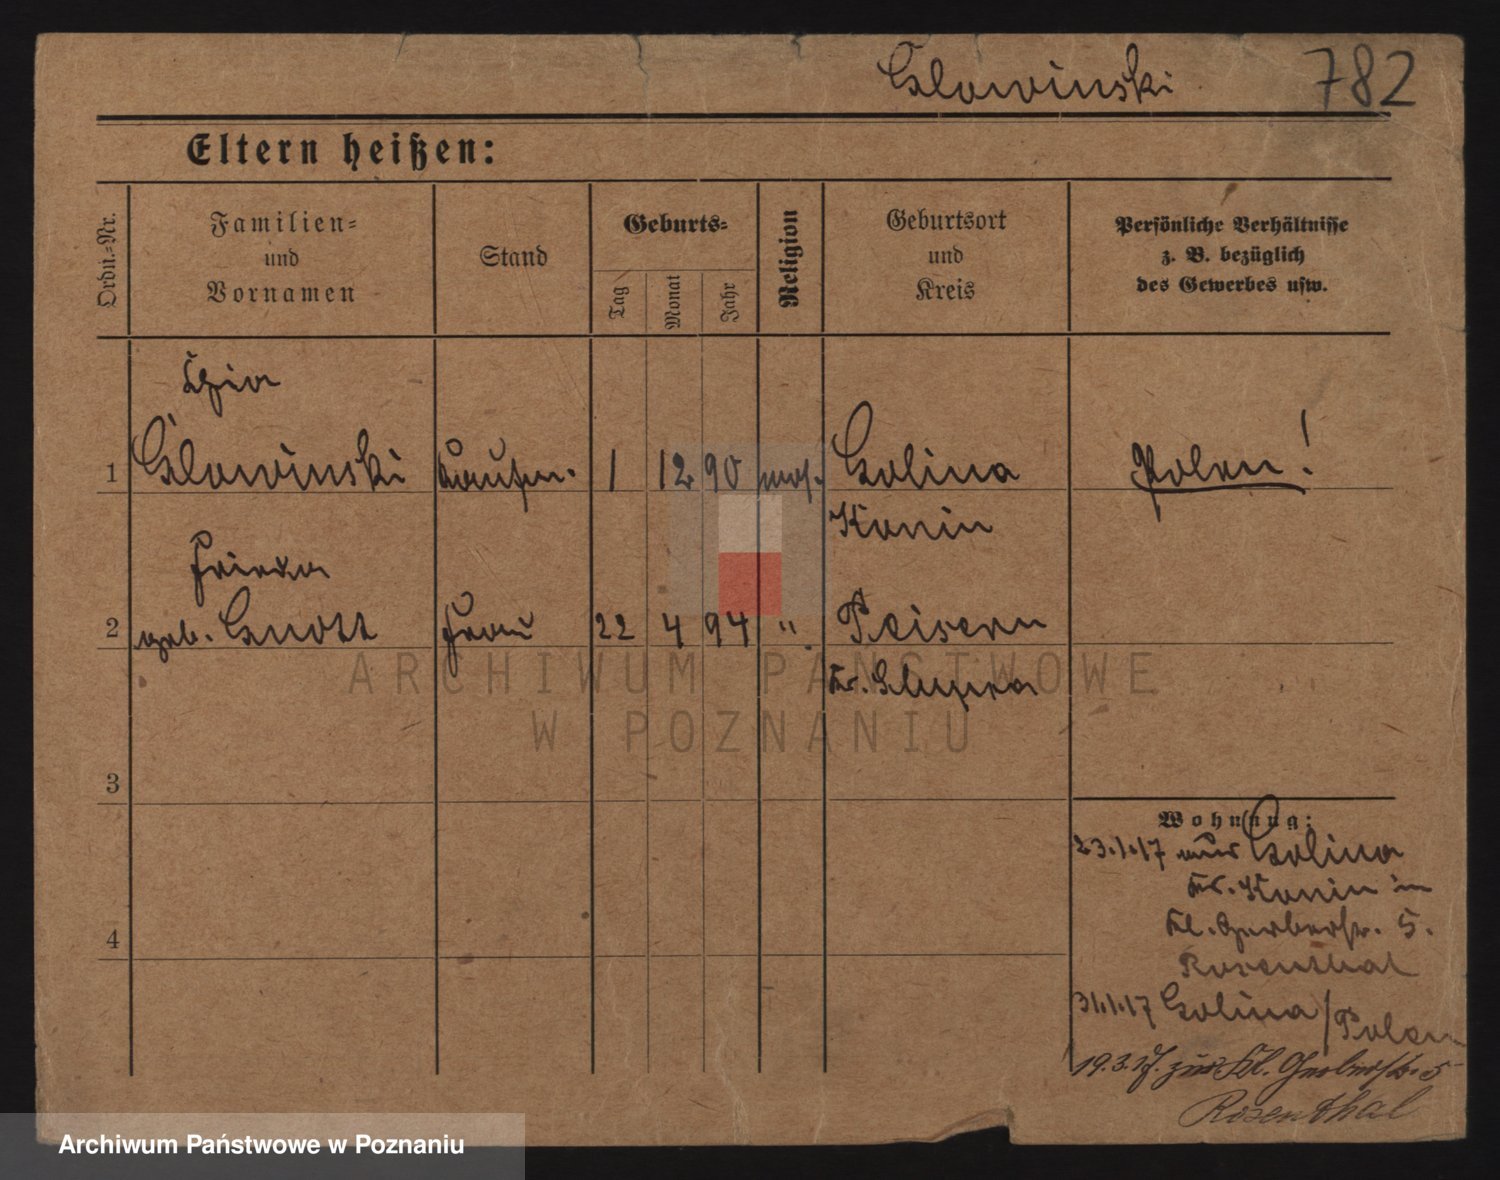 Glowinski 782
Eltern heißen:
Ordn.-Nr.
Familien-
und
Vornamen
Stand
Geburts-
Tag
Monat
Jahr
Religion
Geburtsort
und
Kreis
Persönliche Verhältnisse
z. B. bezüglich
des Gewerbes usw.
1
Glowinski
1 12 90 mos.
Golina
Konin
Polen!
Frieda
2
geb. Gnott
Frau
22 4 94 "
Peisern
Kr. Slupca
3
4
Wohnung:
23.1.17 aus Golina
Kr. Konin in
Kl. Gerberstr. 5.
Rosenthal
31.1.17 Golina / Polen
19.3.17. zur Kl. Gerberstr. 5
Rosenthal
ARCHIWUM PAŃSTWOWE
W POZNANIU
Archiwum Państwowe w Poznaniu